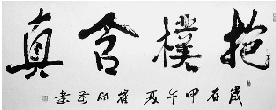 抱樸含真
歲在甲午夏